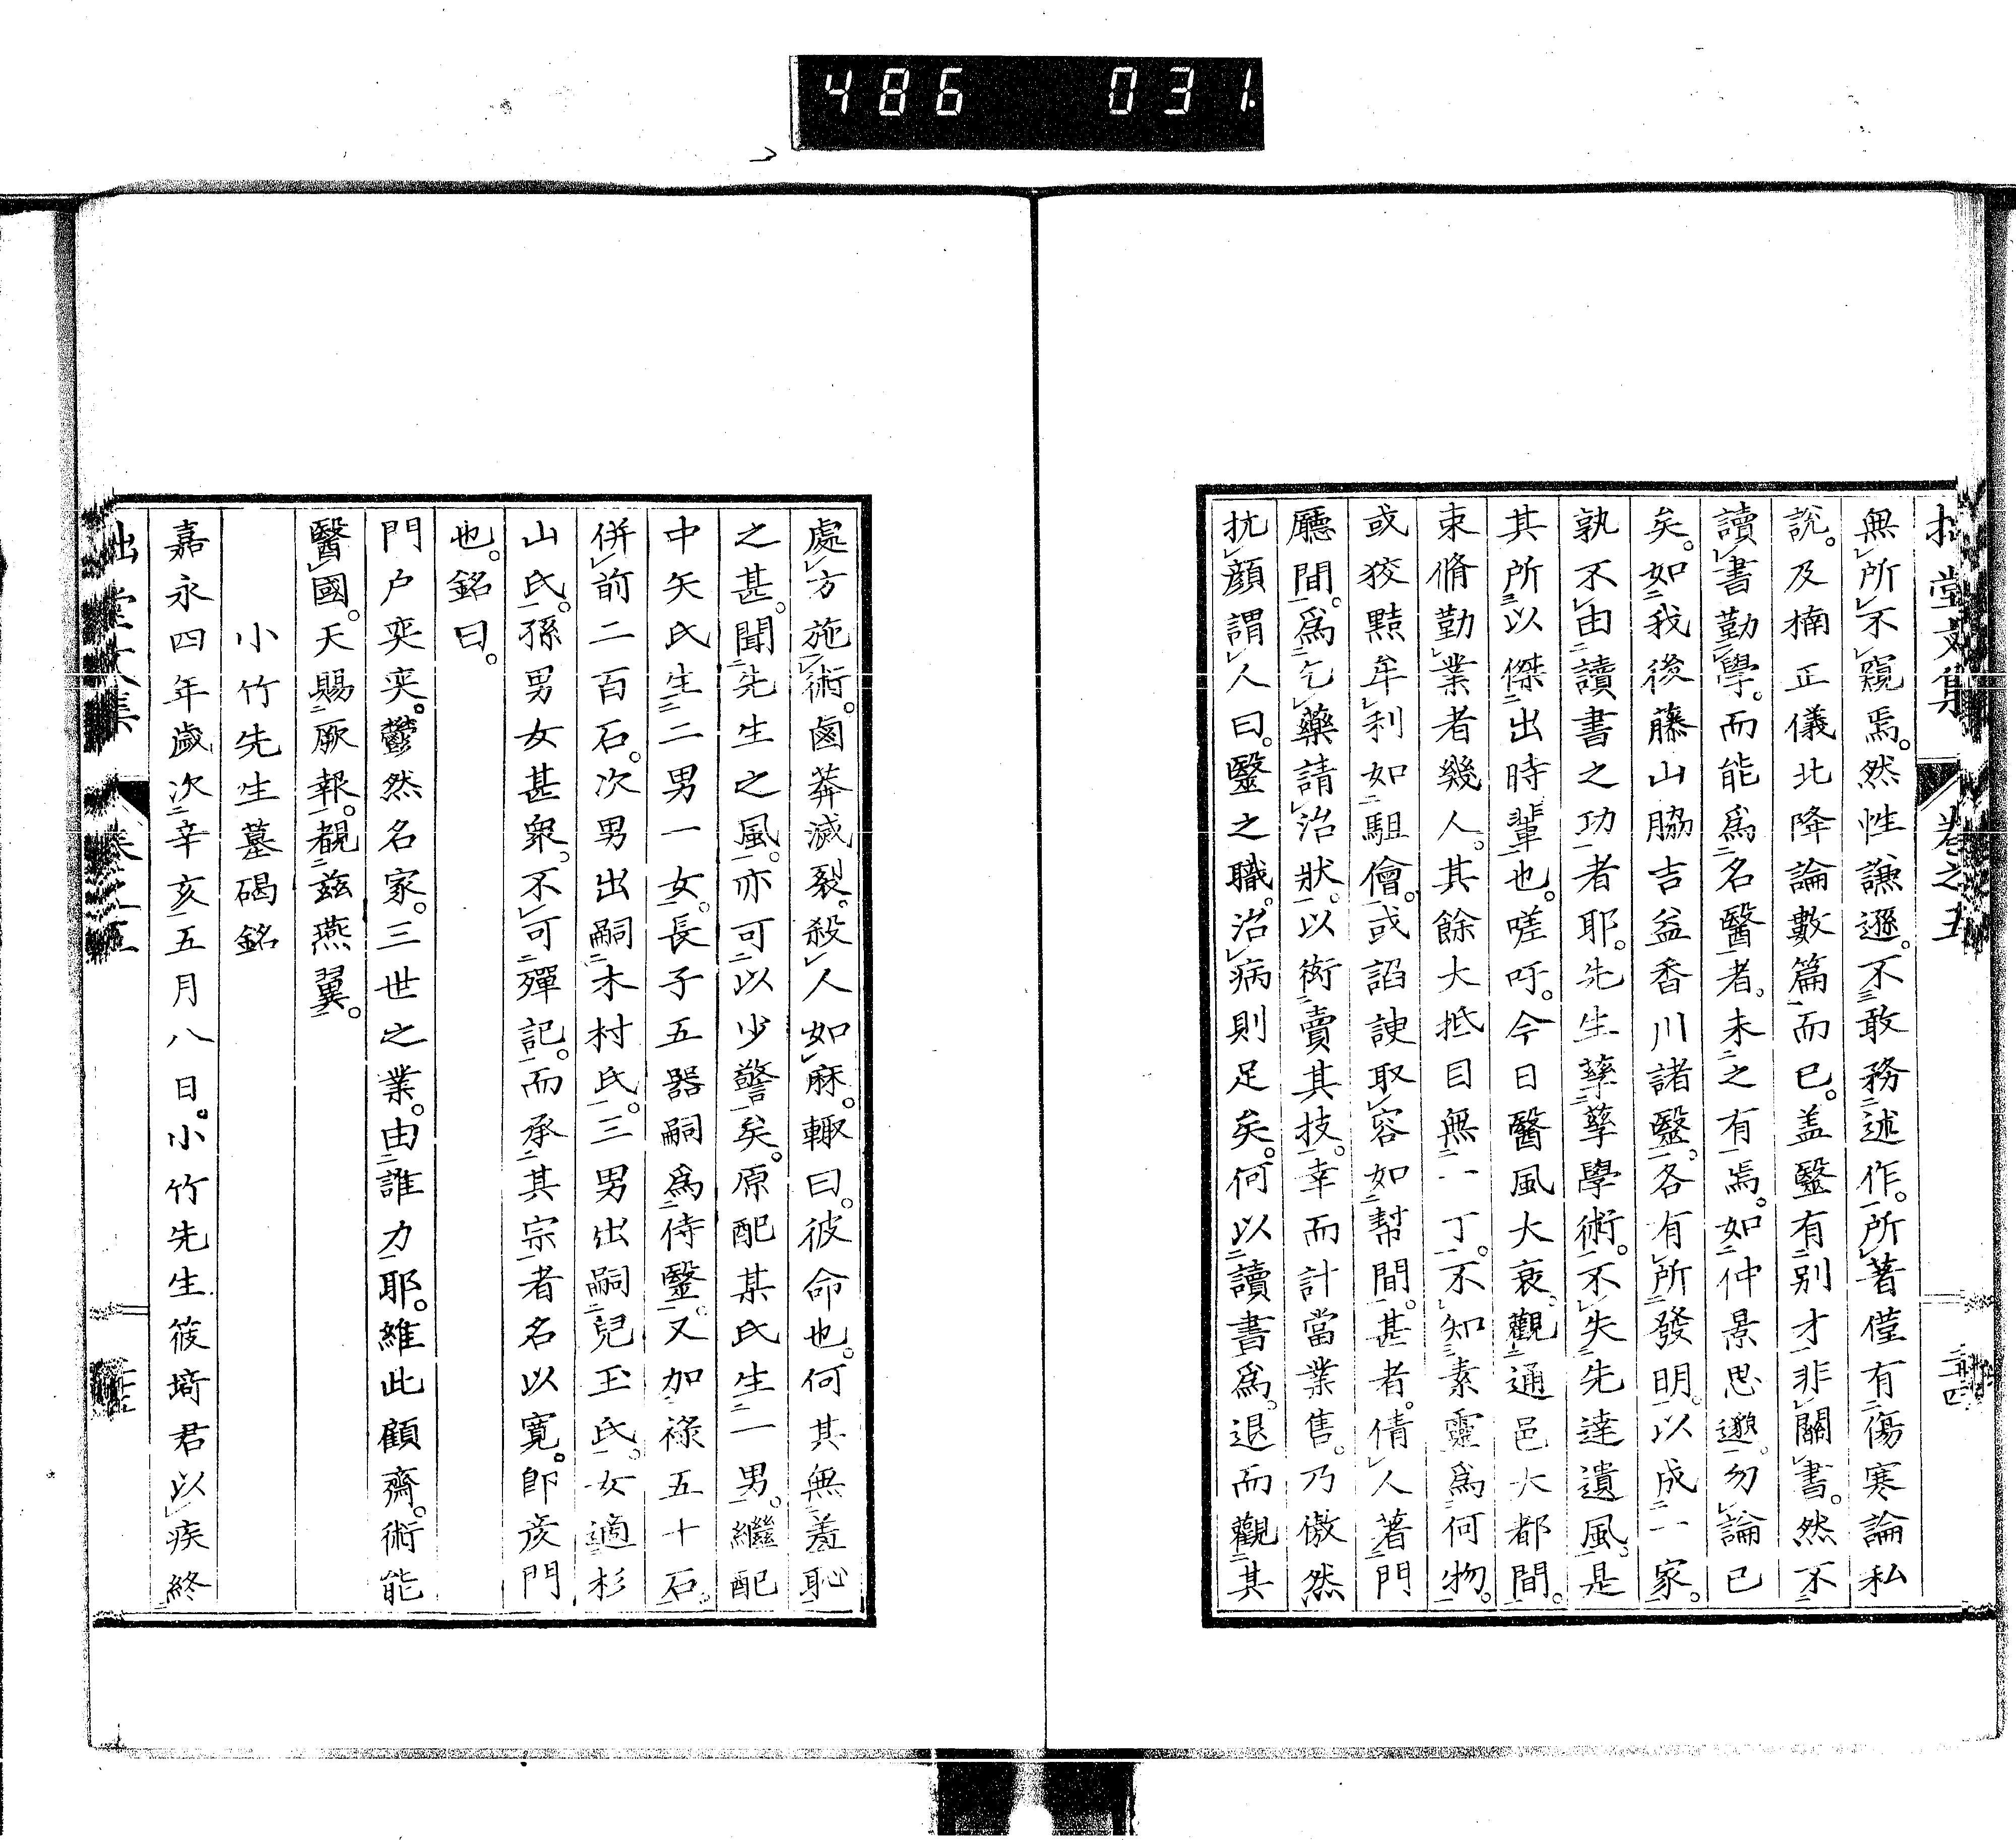 486 031
拙堂文集 卷之五 二十四
無所不窺焉。然性謙遜。不敢務述作。所著僅有傷寒論私
説。及楠正儀北降論數篇而已。盖毉有別才。非關書。然不
讀書勤學。而能爲名醫者。未之有焉。如仲景思邈。勿論已
矣。如我後藤山脇吉益香川諸毉。各有所發明。以成一家。
孰不由讀書之功者耶。先生孳孳學術。不失先達遺風。是
其所以傑出時輩也。嗟吁。今日醫風大衰。觀通邑大都間。
束脩勤業者幾人。其餘大抵目無一丁。不知素靈爲何物。
或狡黠牟利如駔儈。或諂諛取容如幇間。甚者。倩人著門
廳間。爲乞藥請治狀。以衒賣其技。幸而計當業售。乃傲然
抗顔謂人曰。毉之職。治病則足矣。何以讀書爲。退而觀其
處方施術。鹵莽滅裂。殺人如麻。輙曰。彼命也。何其無羞恥
之甚。聞先生之風。亦可以少警矣。原配某氏生一男。繼配
中矢氏生二男一女。長子五器嗣爲侍毉。又加祿五十石。
併前二百石。次男出嗣木村氏。三男出嗣兒玉氏。女適杉
山氏。孫男女甚衆。不可殫記。而承其宗者名以寛。卽彦門
也。銘曰。
門户奕奕。鬱然名家。三世之業。由誰力耶。維此顧齋。術能
醫國。天賜厥報。覩茲燕翼。
小竹先生墓碣銘
嘉永四年歲次辛亥五月八日。小竹先生筱埼君以疾終
拙堂文集 卷之五